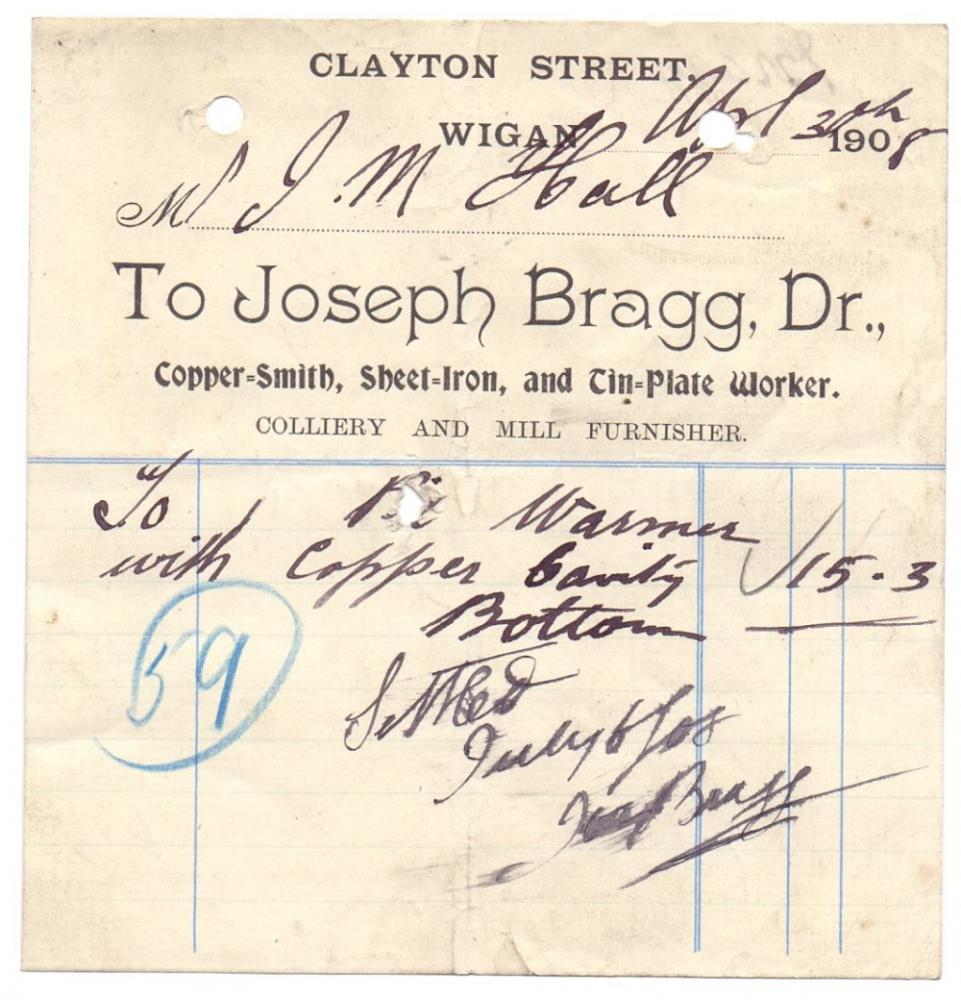 CLAYTON STREET.
WIGAN April 30th 1908
Mr J. M Hall
To Joseph Bragg, Dr.,
Copper-Smith, Sheet-Iron, and Tin-Plate Worker.
COLLIERY AND MILL FURNISHER.
To 1 Pie Warmer
with Copper Cavity 15 - 3
Bottom
59
Settled
July 6/08
Jos Bragg